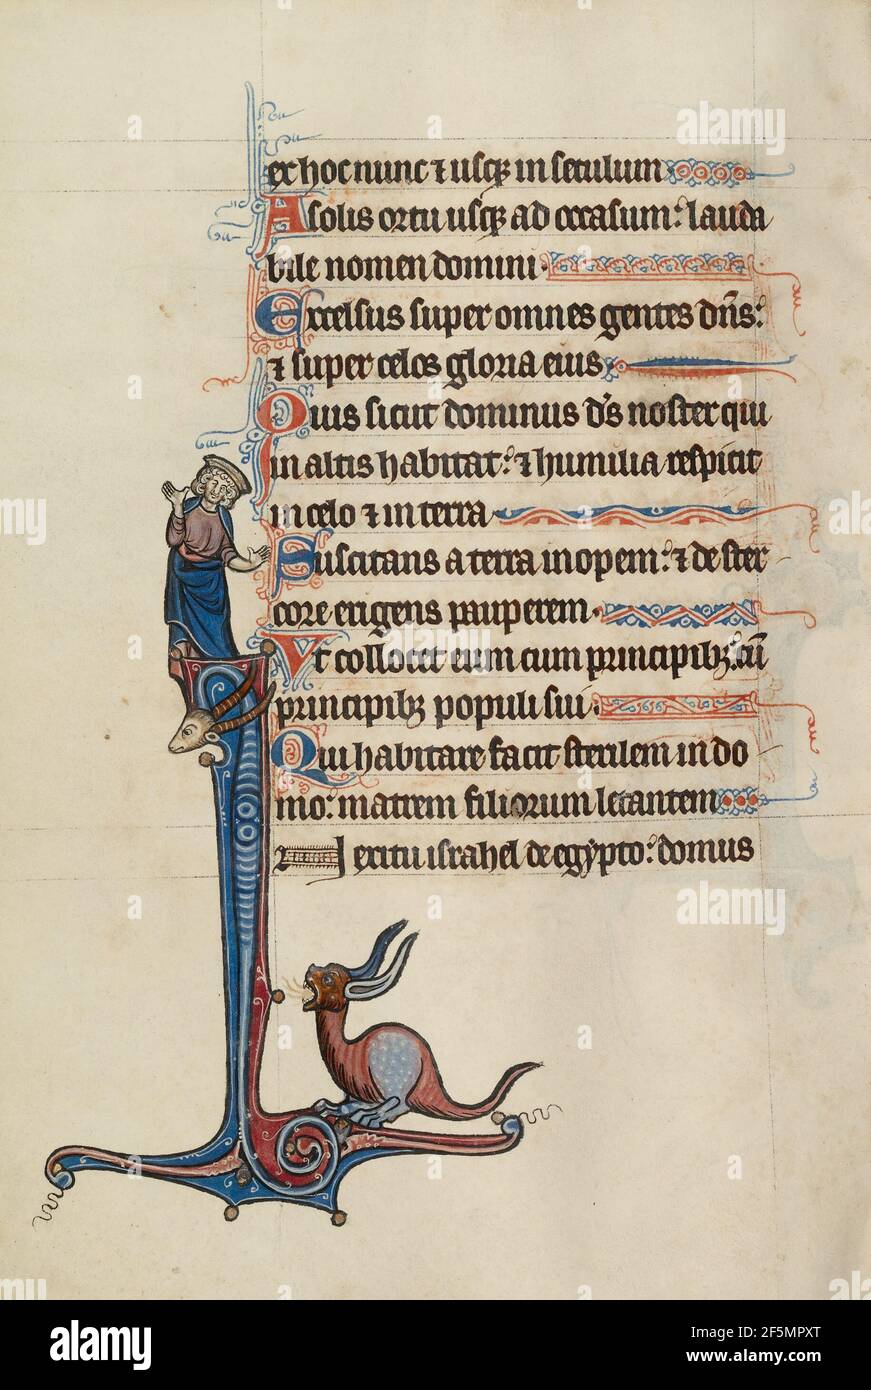 ex hoc nunc ⁊ usqꝫ in seculum
A solis ortu usqꝫ ad occasum: lauda
bile nomen domini.
Excelsus super omnes gentes dñs:
⁊ super celos gloria eius
Quis sicut dominus ds̄ noster qui
in altis habitat: ⁊ humilia respicit
in celo ⁊ in terra
Suscitans a terra inopem: ⁊ de ster
core erigens pauperem.
Ut collocet eum cum principibꝫ: cū
principibꝫ populi sui.
Qui habitare facit sterilem in do
mo: matrem filiorum letantem
In exitu israhel de egypto: domus
alamy
Image ID: 2F5MPXT
www.alamy.com